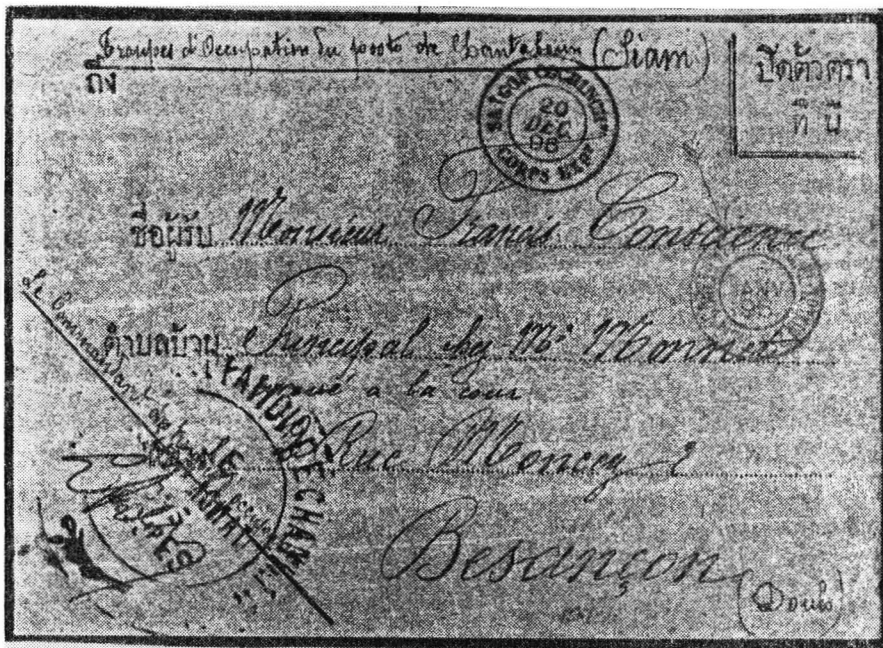 Troupes d'Occupation du poste de Chantaboun (Siam)
ถึง
ปิดตัวตรา
ที่นี่
SAIGON COCHINCH
20
DEC
CORPS EXP
ชื่อผู้รับ Monsieur Francis Conscience
JANV
ตำบลบ้าน Principal chez Me Monnet
avoué a la cour
Rue Moncey 2
Besançon
(Doubs)
Le Commandant